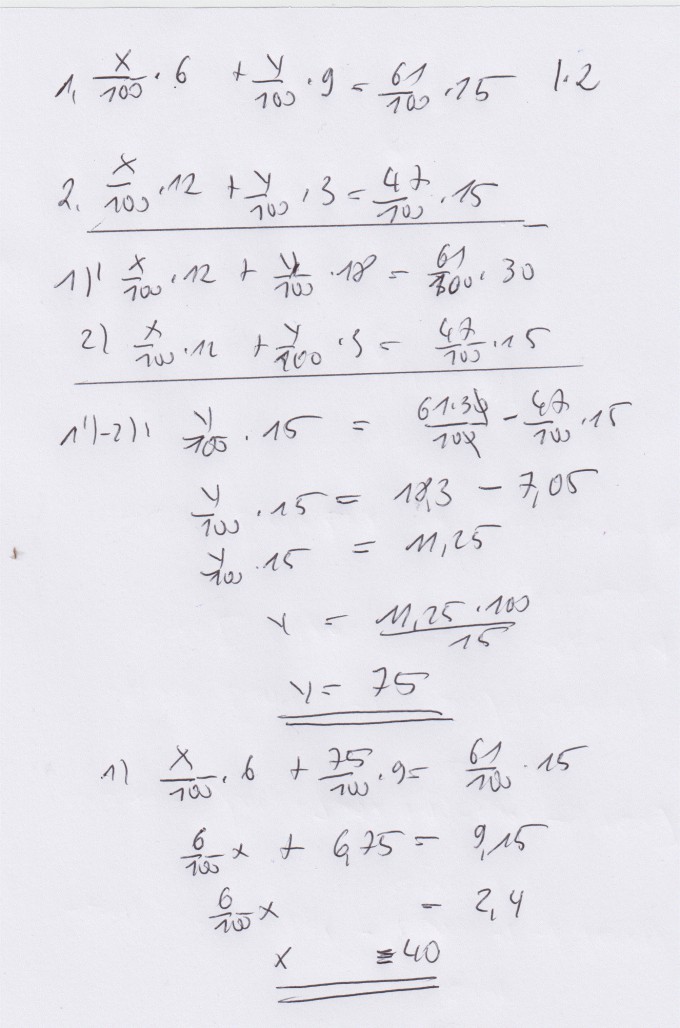 1. x/100 · 6 + y/100 · 9 = 61/100 · 15 | · 2
2. x/100 · 12 + y/100 · 3 = 47/100 · 15
1)' x/100 · 12 + y/100 · 18 = 61/100 · 30
2) x/100 · 12 + y/100 · 3 = 47/100 · 15
1')-2): y/100 · 15 = 61·30/100 - 47/100 · 15
y/100 · 15 = 18,3 - 7,05
y/100 · 15 = 11,25
y = 11,25 · 100/15
y = 75
1) x/100 · 6 + 75/100 · 9 = 61/100 · 15
6/100 x + 6,75 = 9,15
6/100 x = 2,4
x = 40